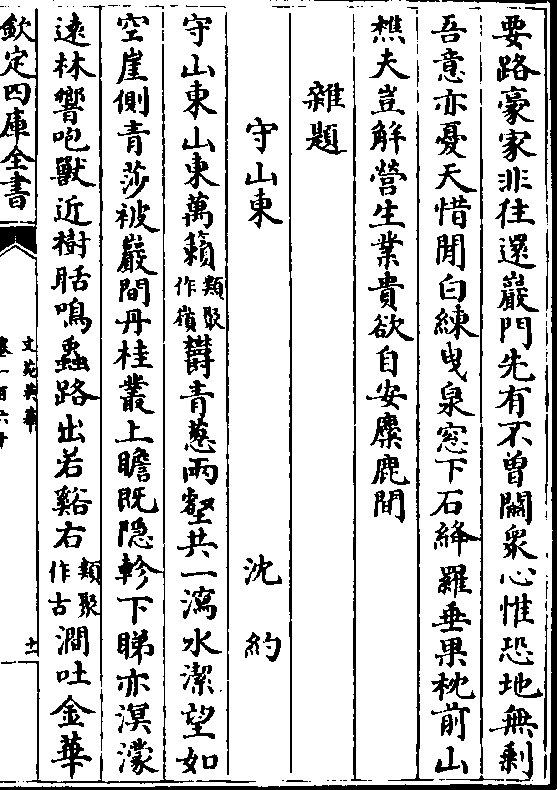 要路豪家非往還巖門先有不曽關衆心惟恐地無剰
吾意亦憂天惜閒白練曳泉窓下石絳羅垂果枕前山
樵夫豈解營生業貴欲自安麋鹿間
雜題
守山東 沈約
守山東山東萬籟類聚作嶺欝青葱兩壑共一瀉水潔望如
空崖側青莎被巖間丹桂叢上瞻既隠軫下睇亦溟濛
逺林響咆獸近樹聒鳴蟲路出若谿右類聚作古澗吐金華
欽定四庫全書
文苑英華
卷一百六十
十一